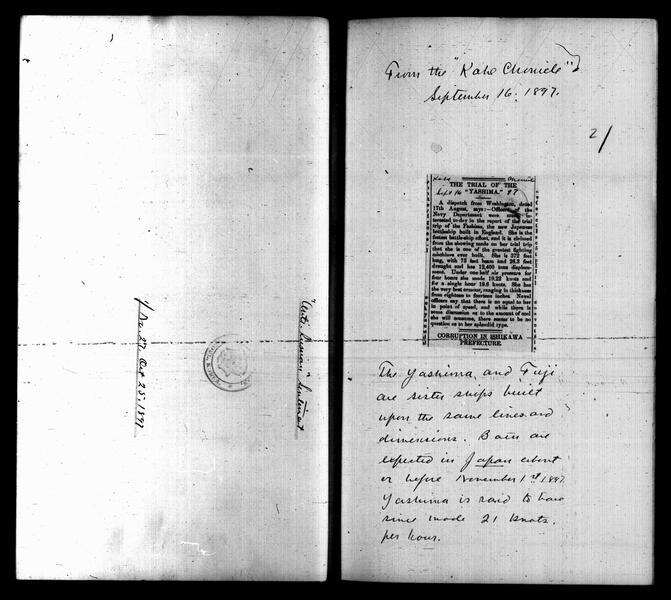 "Anti-Russian" Sentiment
Oct 25. 1897
From the "Kobe Chronicle"
September 16. 1897.
2/
Kobe Chronicle
THE TRIAL OF THE
Sept 16 "YASHIMA." 97
A dispatch from Washington, dated
17th August, says:—Officers of the
Navy Department were
terested to-day in the report of the trial
trip of the Yashima, the new Japanese
battleship built in England. She is the
fastest battle-ship afloat, and it is claimed
from the showing made on her trial trip
that she is one of the greatest fighting
machines ever built. She is 372 feet
long, with 73 feet beam and 26.3 feet
draught and has 12,400 tons displace-
ment. Under one-half air pressure for
four hours she made 19.22 knots and
for a single hour 19.6 knots. She has
the very best armour, ranging in thickness
from eighteen to fourteen inches. Naval
officers say that there is no equal to her
in point of speed, and while there is
some discussion as to the amount of coal
she will consume, there seems to be no
question as to her splendid type.
CORRUPTION IN ISHIKAWA
PREFECTURE.
The Yashima and Fuji
are sister ships built
upon the same lines and
dimensions. Both are
expected in Japan about
or before November 1st 1897.
Yashima is said to have
since made 21 knots.
per hour.